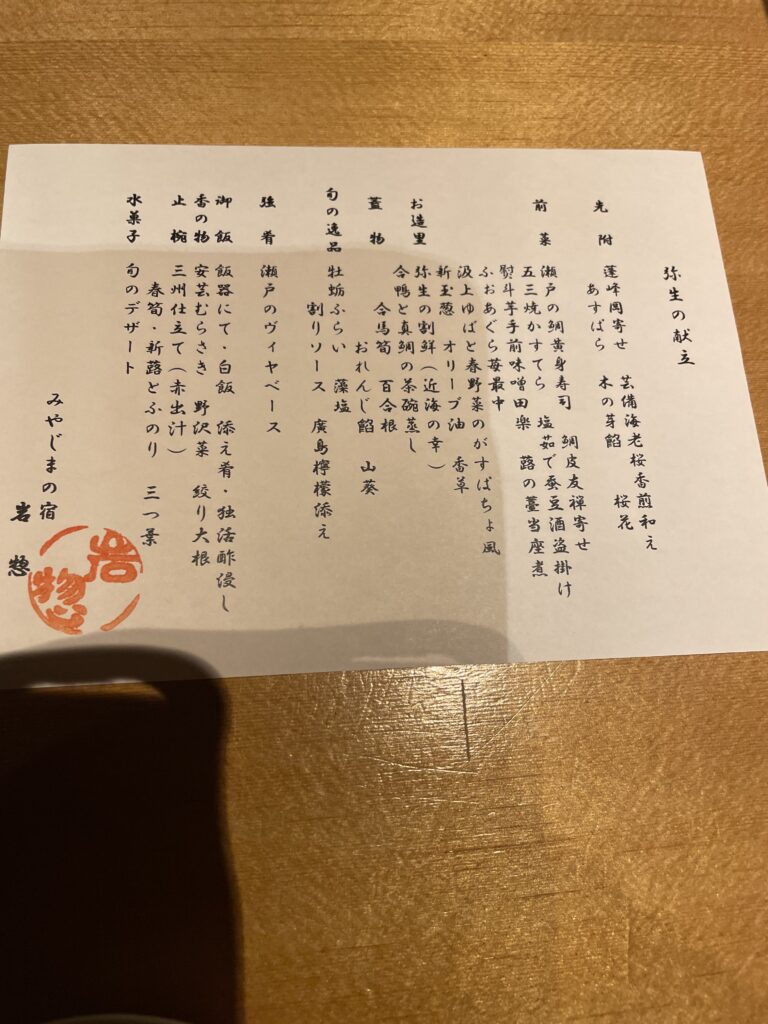 弥生の献立
先附 蓬峰岡寄せ 芸備海老桜香煎和え
あすぱら 木の芽餡 桜花
前菜 瀬戸の鯛黄身寿司 鯛皮友禅寄せ
五三焼かすてら 塩茹で蚕豆酒盗掛け
熨斗芋手前味噌田楽 蕗の薹当座煮
ふおあぐら苺最中
汲上ゆばと春野菜のがすぱちょ風
新玉葱 オリーブ油 香草
お造里 弥生の割鮮(近海の幸)
蓋物 合鴨と真鯛の茶碗蒸し
合馬筍 百合根
おれんじ餡 山葵
旬の逸品 牡蛎ふらい 藻塩
割りソース 廣島檸檬添え
強肴 瀬戸のヴィヤベース
御飯 飯器にて・白飯 添え肴・独活酢浸し
香の物 安芸むらさき 野沢菜 絞り大根
止椀 三州仕立て(赤出汁)
春筍・新蕗とふのり 三つ葉
水菓子 旬のデザート
みやじまの宿
岩惣
岩惣